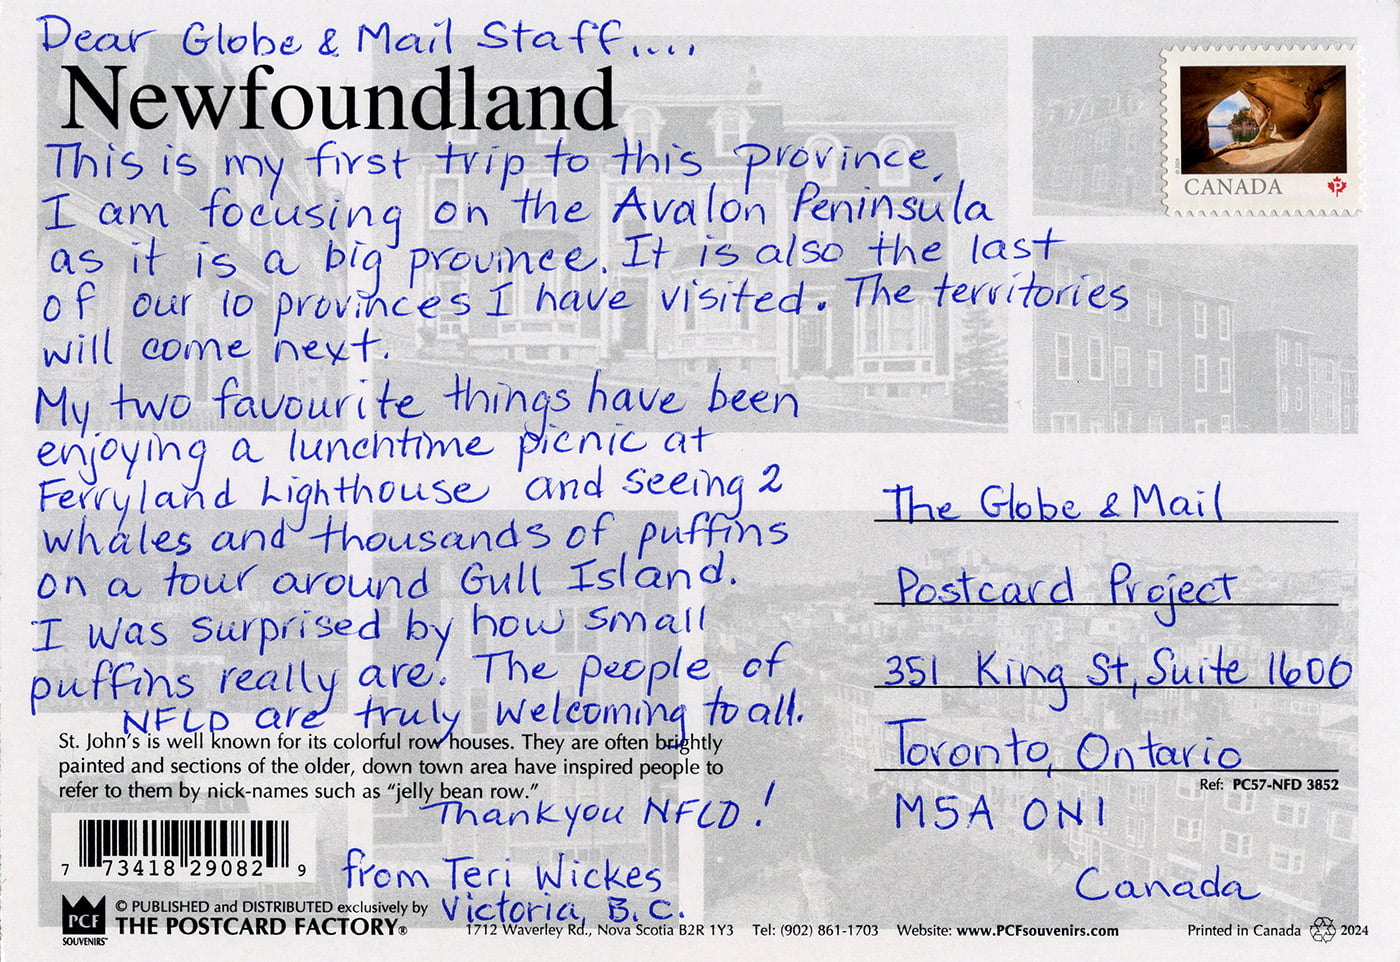 Dear Globe & Mail Staff....
Newfoundland
This is my first trip to this province.
I am focusing on the Avalon Peninsula
as it is a big province. It is also the last
of our 10 provinces I have visited. The territories
will come next.
My two favourite things have been
enjoying a lunchtime picnic at
Ferryland Lighthouse and seeing 2
whales and thousands of puffins
on a tour around Gull Island.
I was surprised by how small
puffins really are! The people of
NFLD are truly welcoming to all.
St. John's is well known for its colorful row houses. They are often brightly
painted and sections of the older, down town area have inspired people to
refer to them by nick-names such as "jelly bean row."
Thankyou NFLD!
from Teri Wickes
Victoria, B.C.
7 73418 29082 9
PCF
SOUVENIRS
© PUBLISHED and DISTRIBUTED exclusively by
THE POSTCARD FACTORY®
1712 Waverley Rd., Nova Scotia B2R 1Y3 Tel: (902) 861-1703 Website: www.PCFsouvenirs.com
CANADA
P
The Globe & Mail
Postcard Project
351 King St, Suite 1600
Toronto, Ontario
Ref: PC57-NFD 3852
M5A 0N1
Canada
Printed in Canada 2024